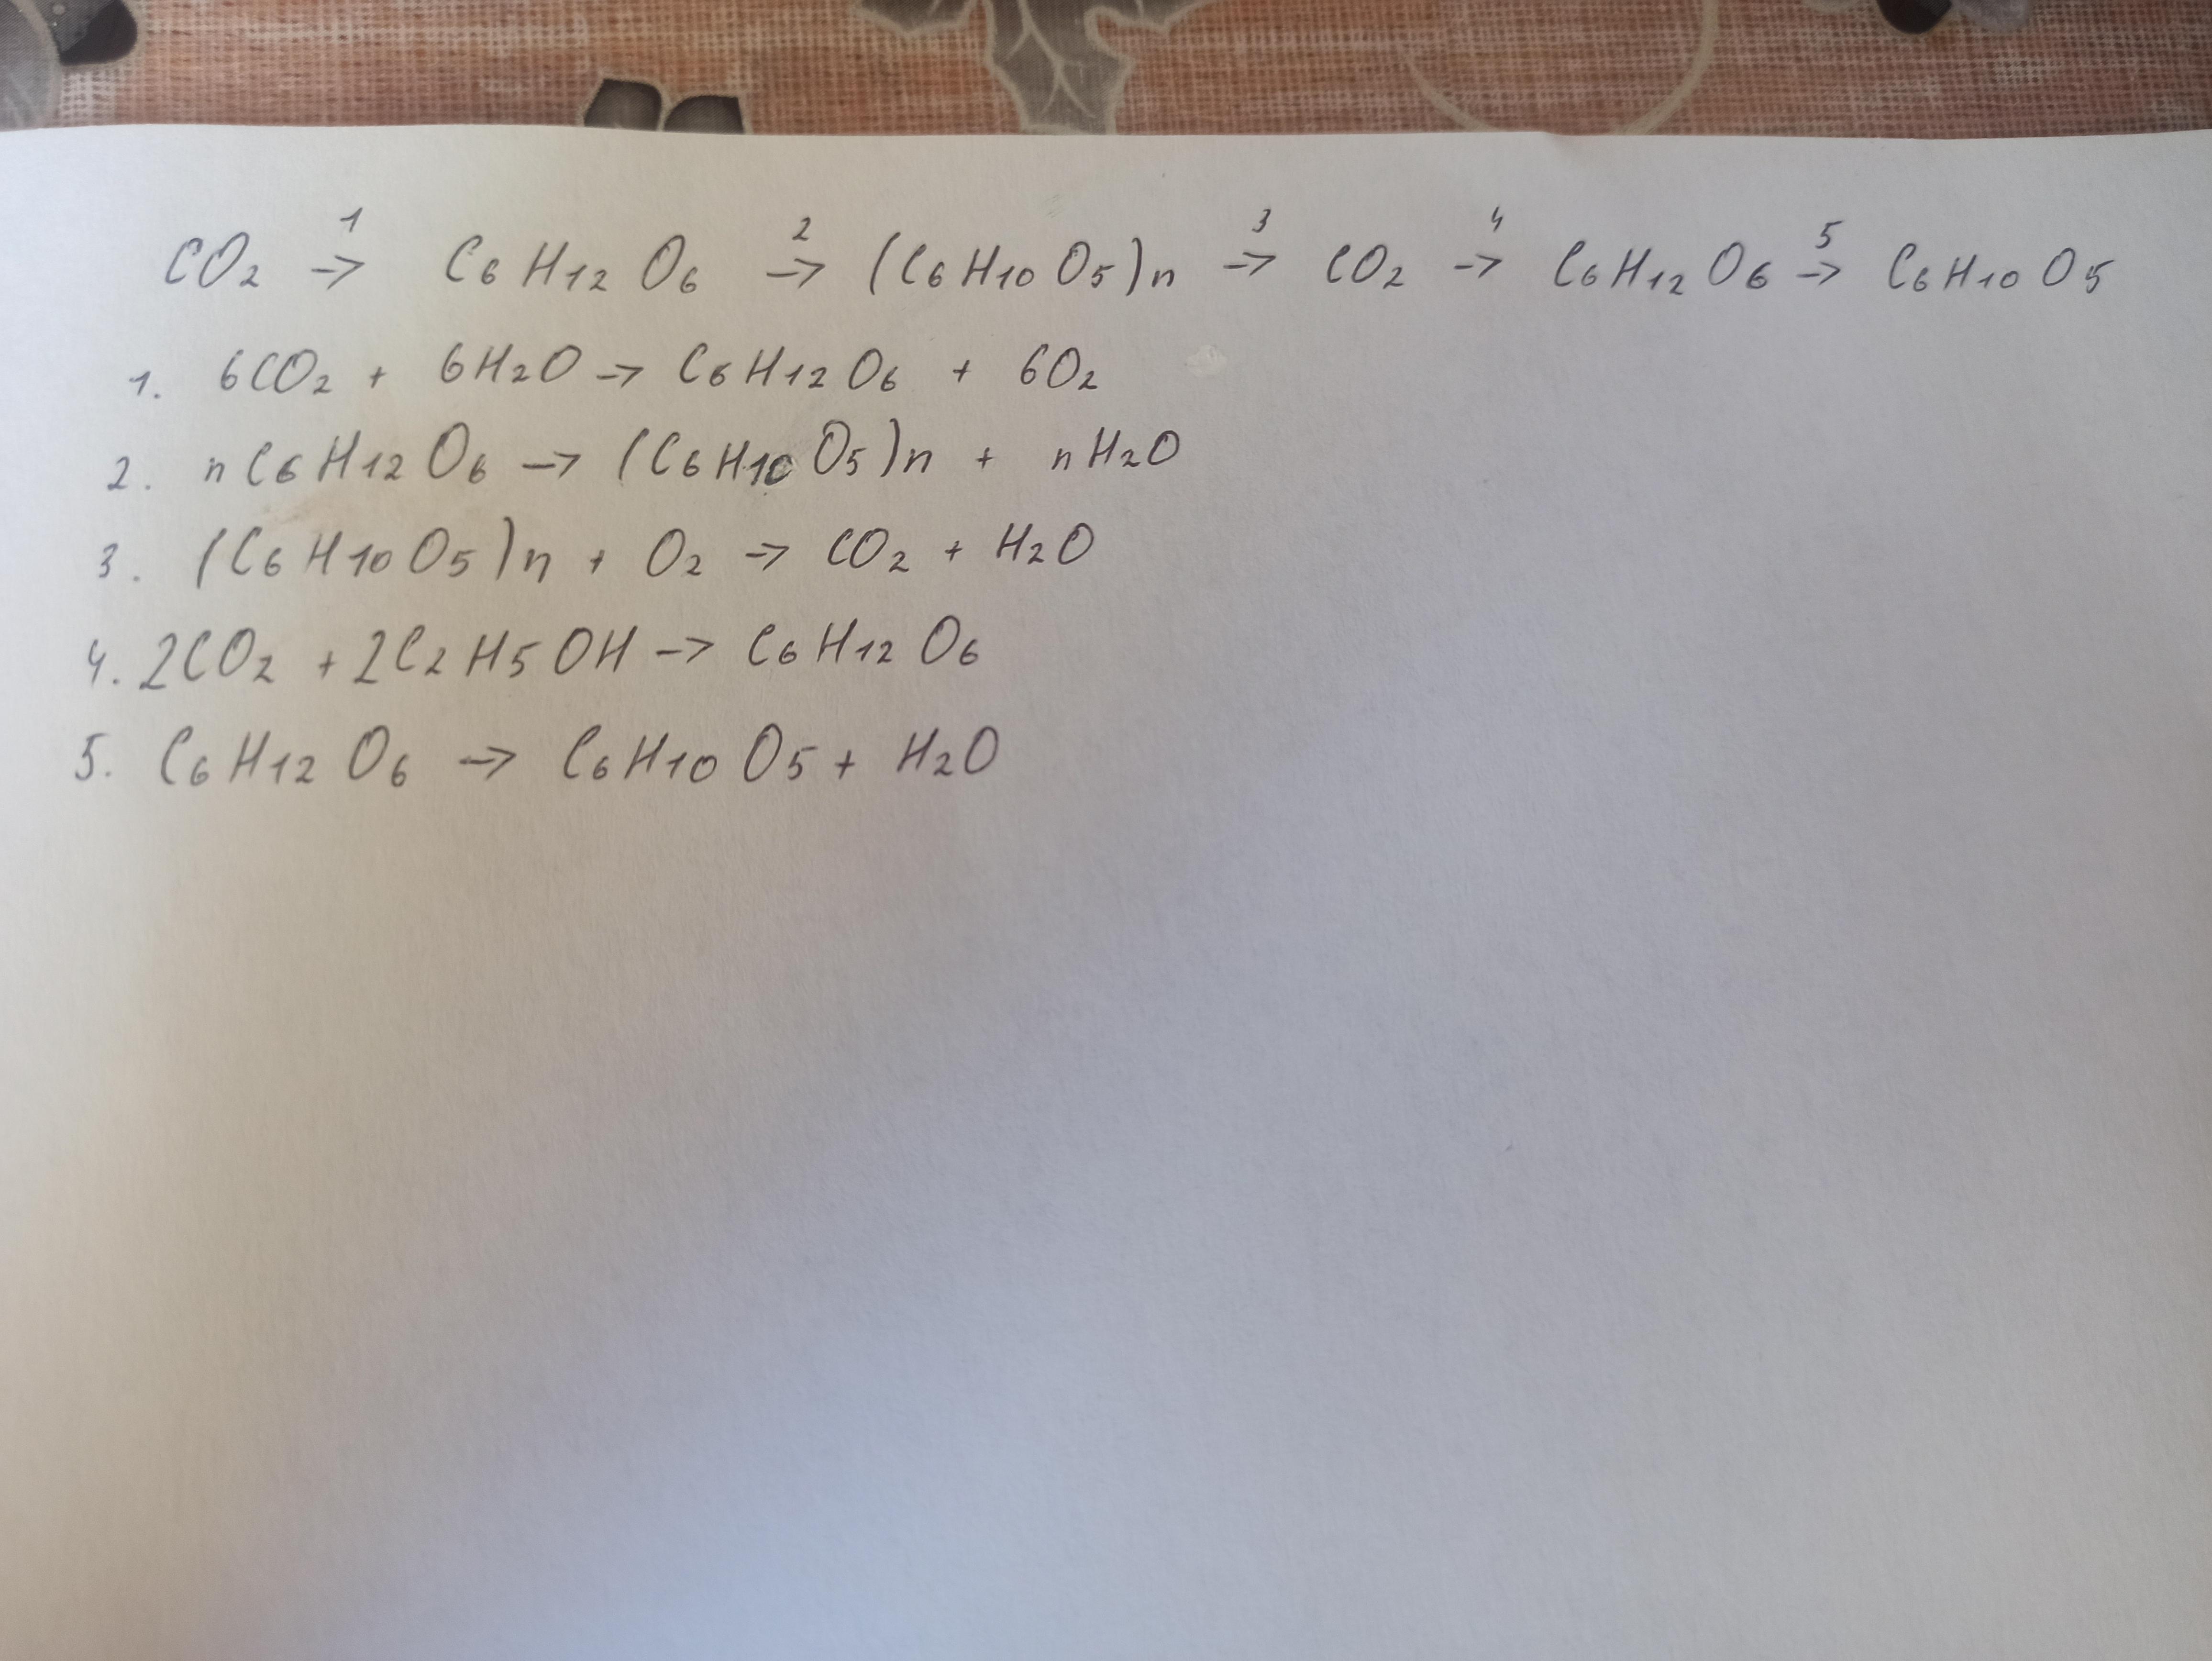 CO2 →1 C6H12O6 →2 (C6H10O5)n →3 CO2 →4 C6H12O6 →5 C6H10O5
1. 6CO2 + 6H2O → C6H12O6 + 6O2
2. nC6H12O6 → (C6H10O5)n + nH2O
3. (C6H10O5)n + O2 → CO2 + H2O
4. 2CO2 + 2C2H5OH → C6H12O6
5. C6H12O6 → C6H10O5 + H2O